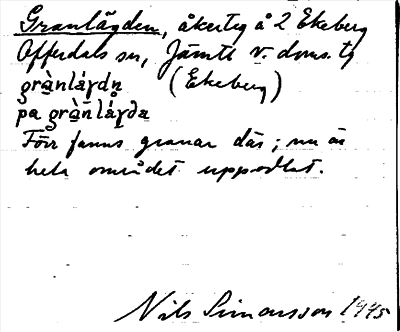 Granlägden, åkerteg å 2 Ekeberg
Offerdals sn, Jämtl v. doms. tg
gràn̄láγdn̥ (Ekeberg)
pa gràn̄láγda
Förr fanns granar där; nu är
hela området uppodlat.
Nils Simonsson 1945